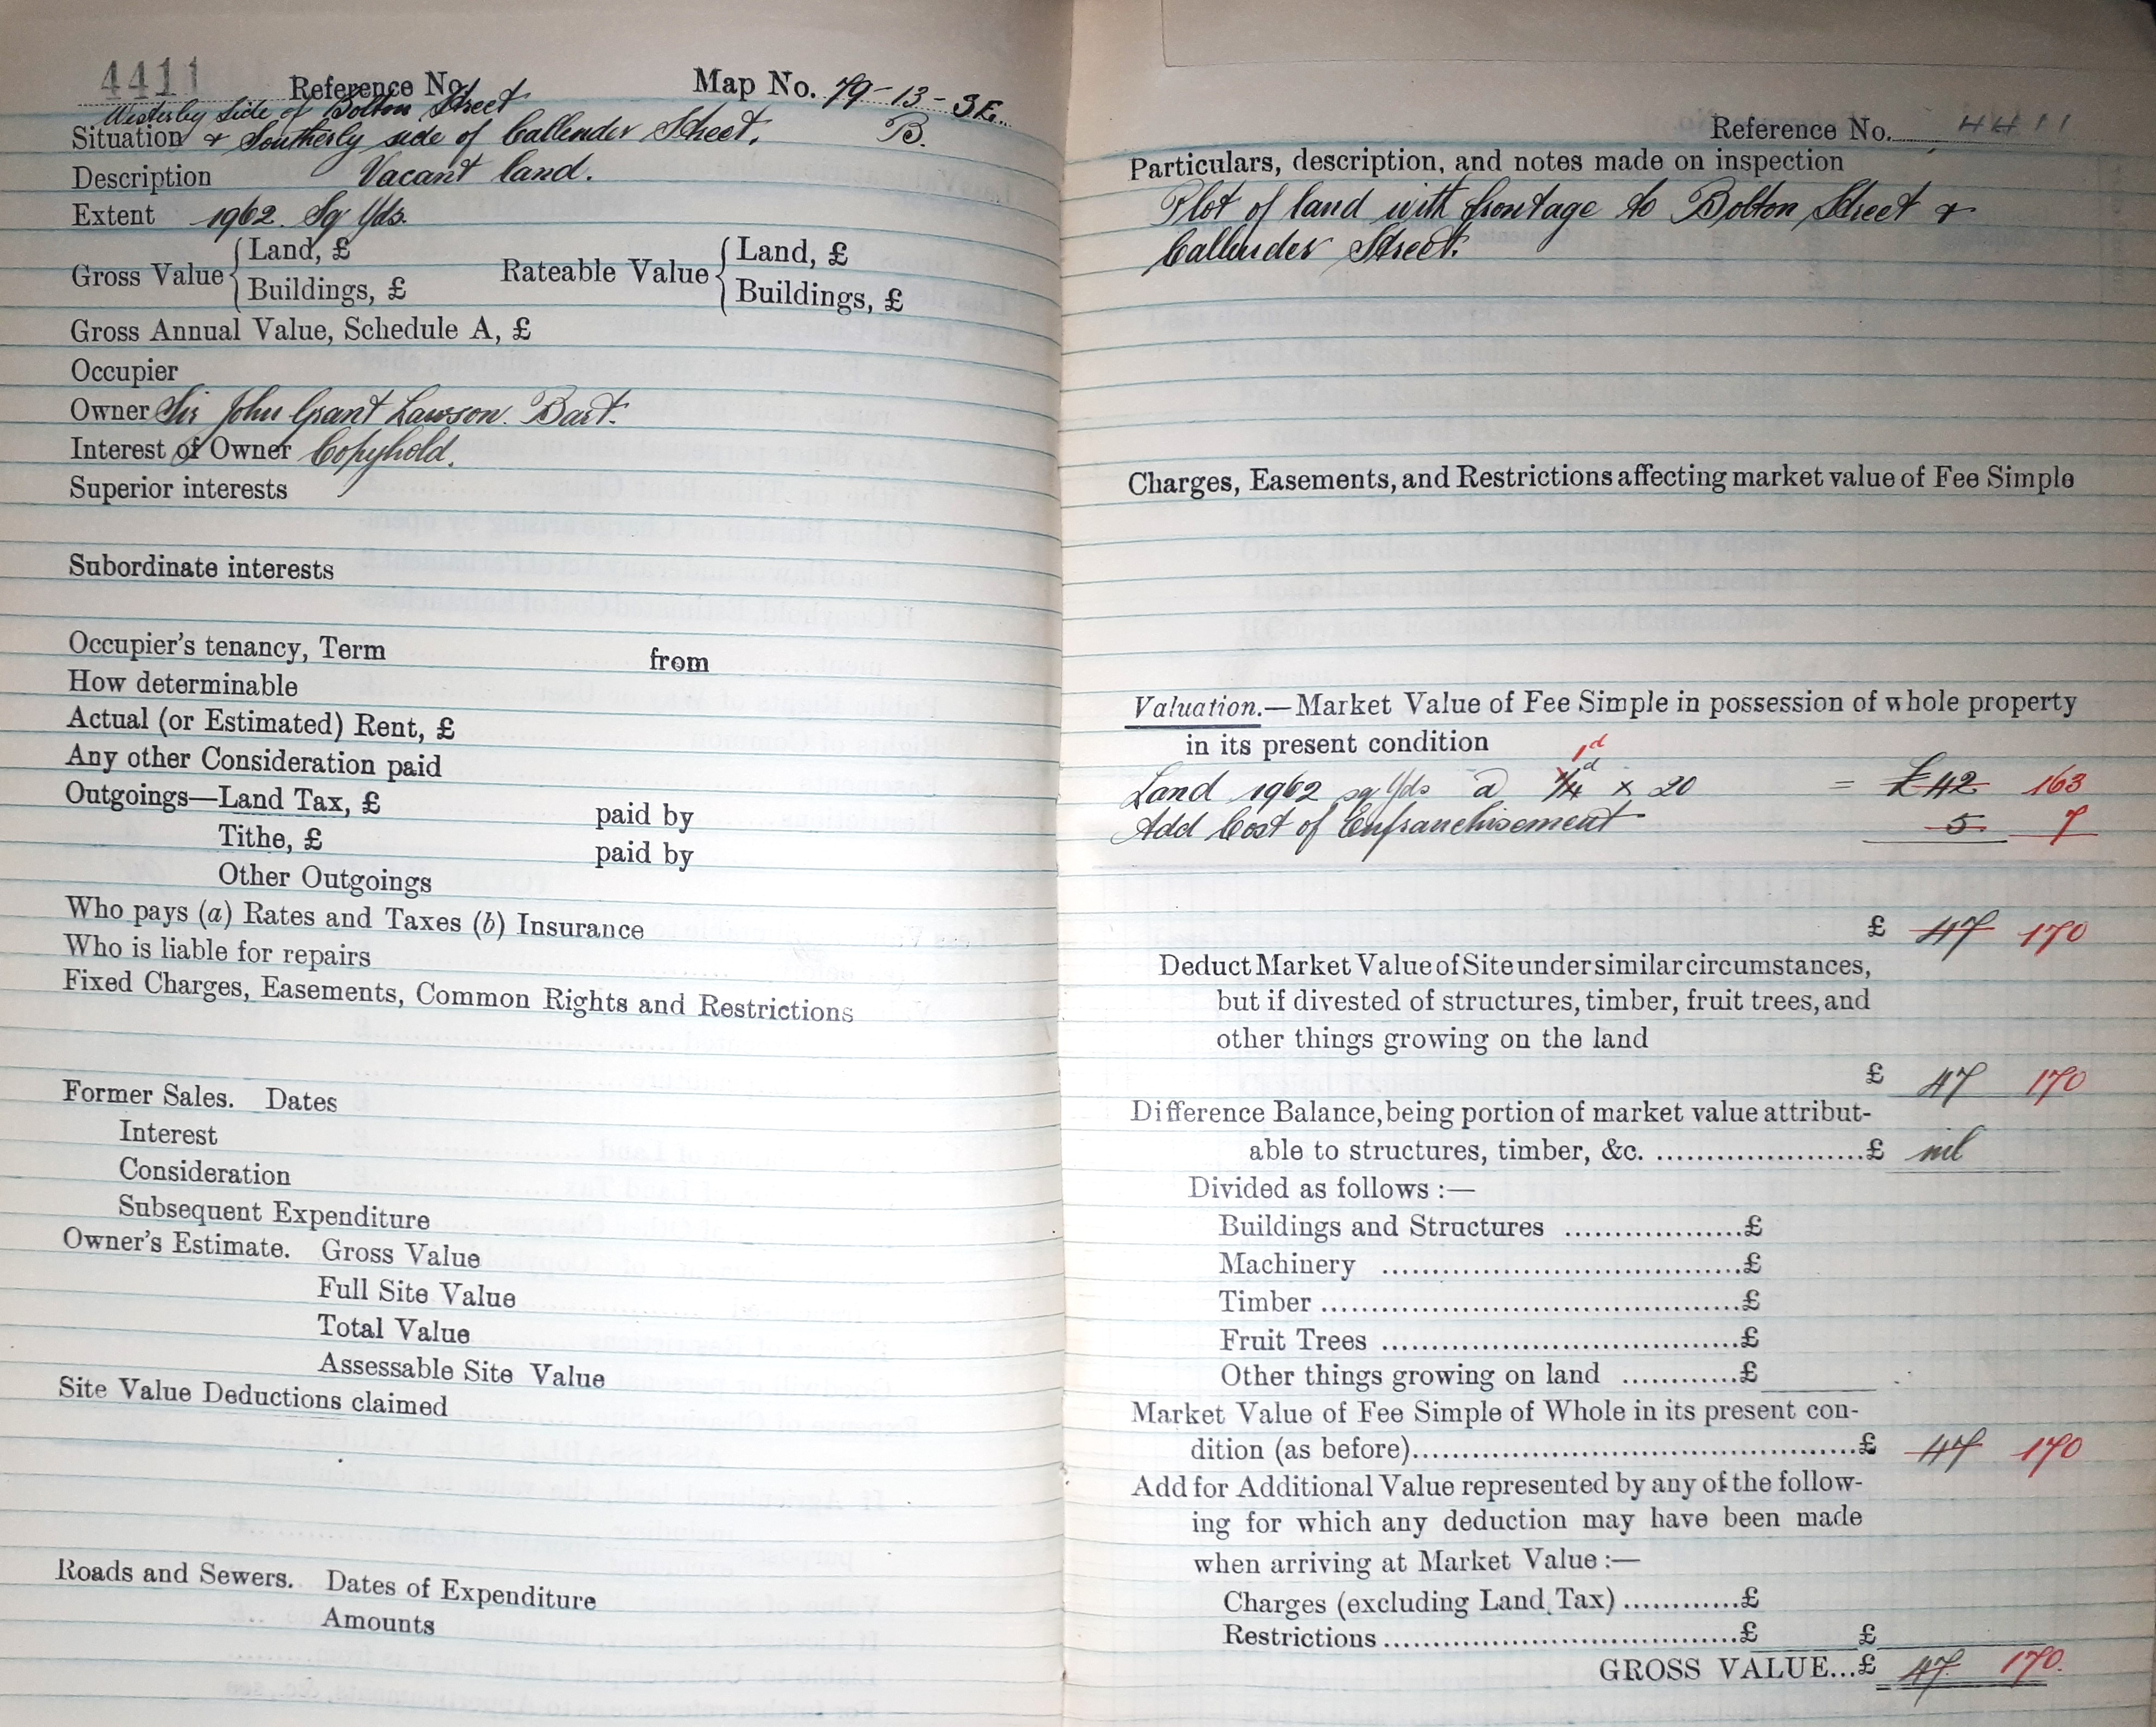 4411 Reference No. Map No. 79-13-SE.
Westerly Side of Bolton Street
Situation & Southerly side of Callender Street. B.
Description Vacant land.
Extent 1962 Sq Yds.
Gross Value { Land, £ Rateable Value { Land, £
Buildings, £ Buildings, £
Gross Annual Value, Schedule A, £
Occupier
Owner Sir John Grant Lawson. Bart.
Interest of Owner Copyhold.
Superior interests
Subordinate interests
Occupier's tenancy, Term from
How determinable
Actual (or Estimated) Rent, £
Any other Consideration paid
Outgoings—Land Tax, £ paid by
Tithe, £ paid by
Other Outgoings
Who pays (a) Rates and Taxes (b) Insurance
Who is liable for repairs
Fixed Charges, Easements, Common Rights and Restrictions
Former Sales. Dates
Interest
Consideration
Subsequent Expenditure
Owner's Estimate. Gross Value
Full Site Value
Total Value
Assessable Site Value
Site Value Deductions claimed
Roads and Sewers. Dates of Expenditure
Amounts
Reference No. 4411
Particulars, description, and notes made on inspection
Plot of land with frontage to Bolton Street &
Callender Street.
Charges, Easements, and Restrictions affecting market value of Fee Simple
Valuation.—Market Value of Fee Simple in possession of whole property
in its present condition
1d
Land 1962 sq Yds @ 1/4d x 20 = £42 163
Add Cost of Enfranchisement 5 7
£ 47 170
Deduct Market Value of Site under similar circumstances,
but if divested of structures, timber, fruit trees, and
other things growing on the land
£ 47 170
Difference Balance, being portion of market value attribut-
able to structures, timber, &c. ......................£ nil
Divided as follows :—
Buildings and Structures ...................£
Machinery ......................................£
Timber ............................................£
Fruit Trees ......................................£
Other things growing on land ............£
Market Value of Fee Simple of Whole in its present con-
dition (as before)...............................................£ 47 170
Add for Additional Value represented by any of the follow-
ing for which any deduction may have been made
when arriving at Market Value :—
Charges (excluding Land Tax) ............£
Restrictions ......................................£ £
GROSS VALUE...£ 47 170.